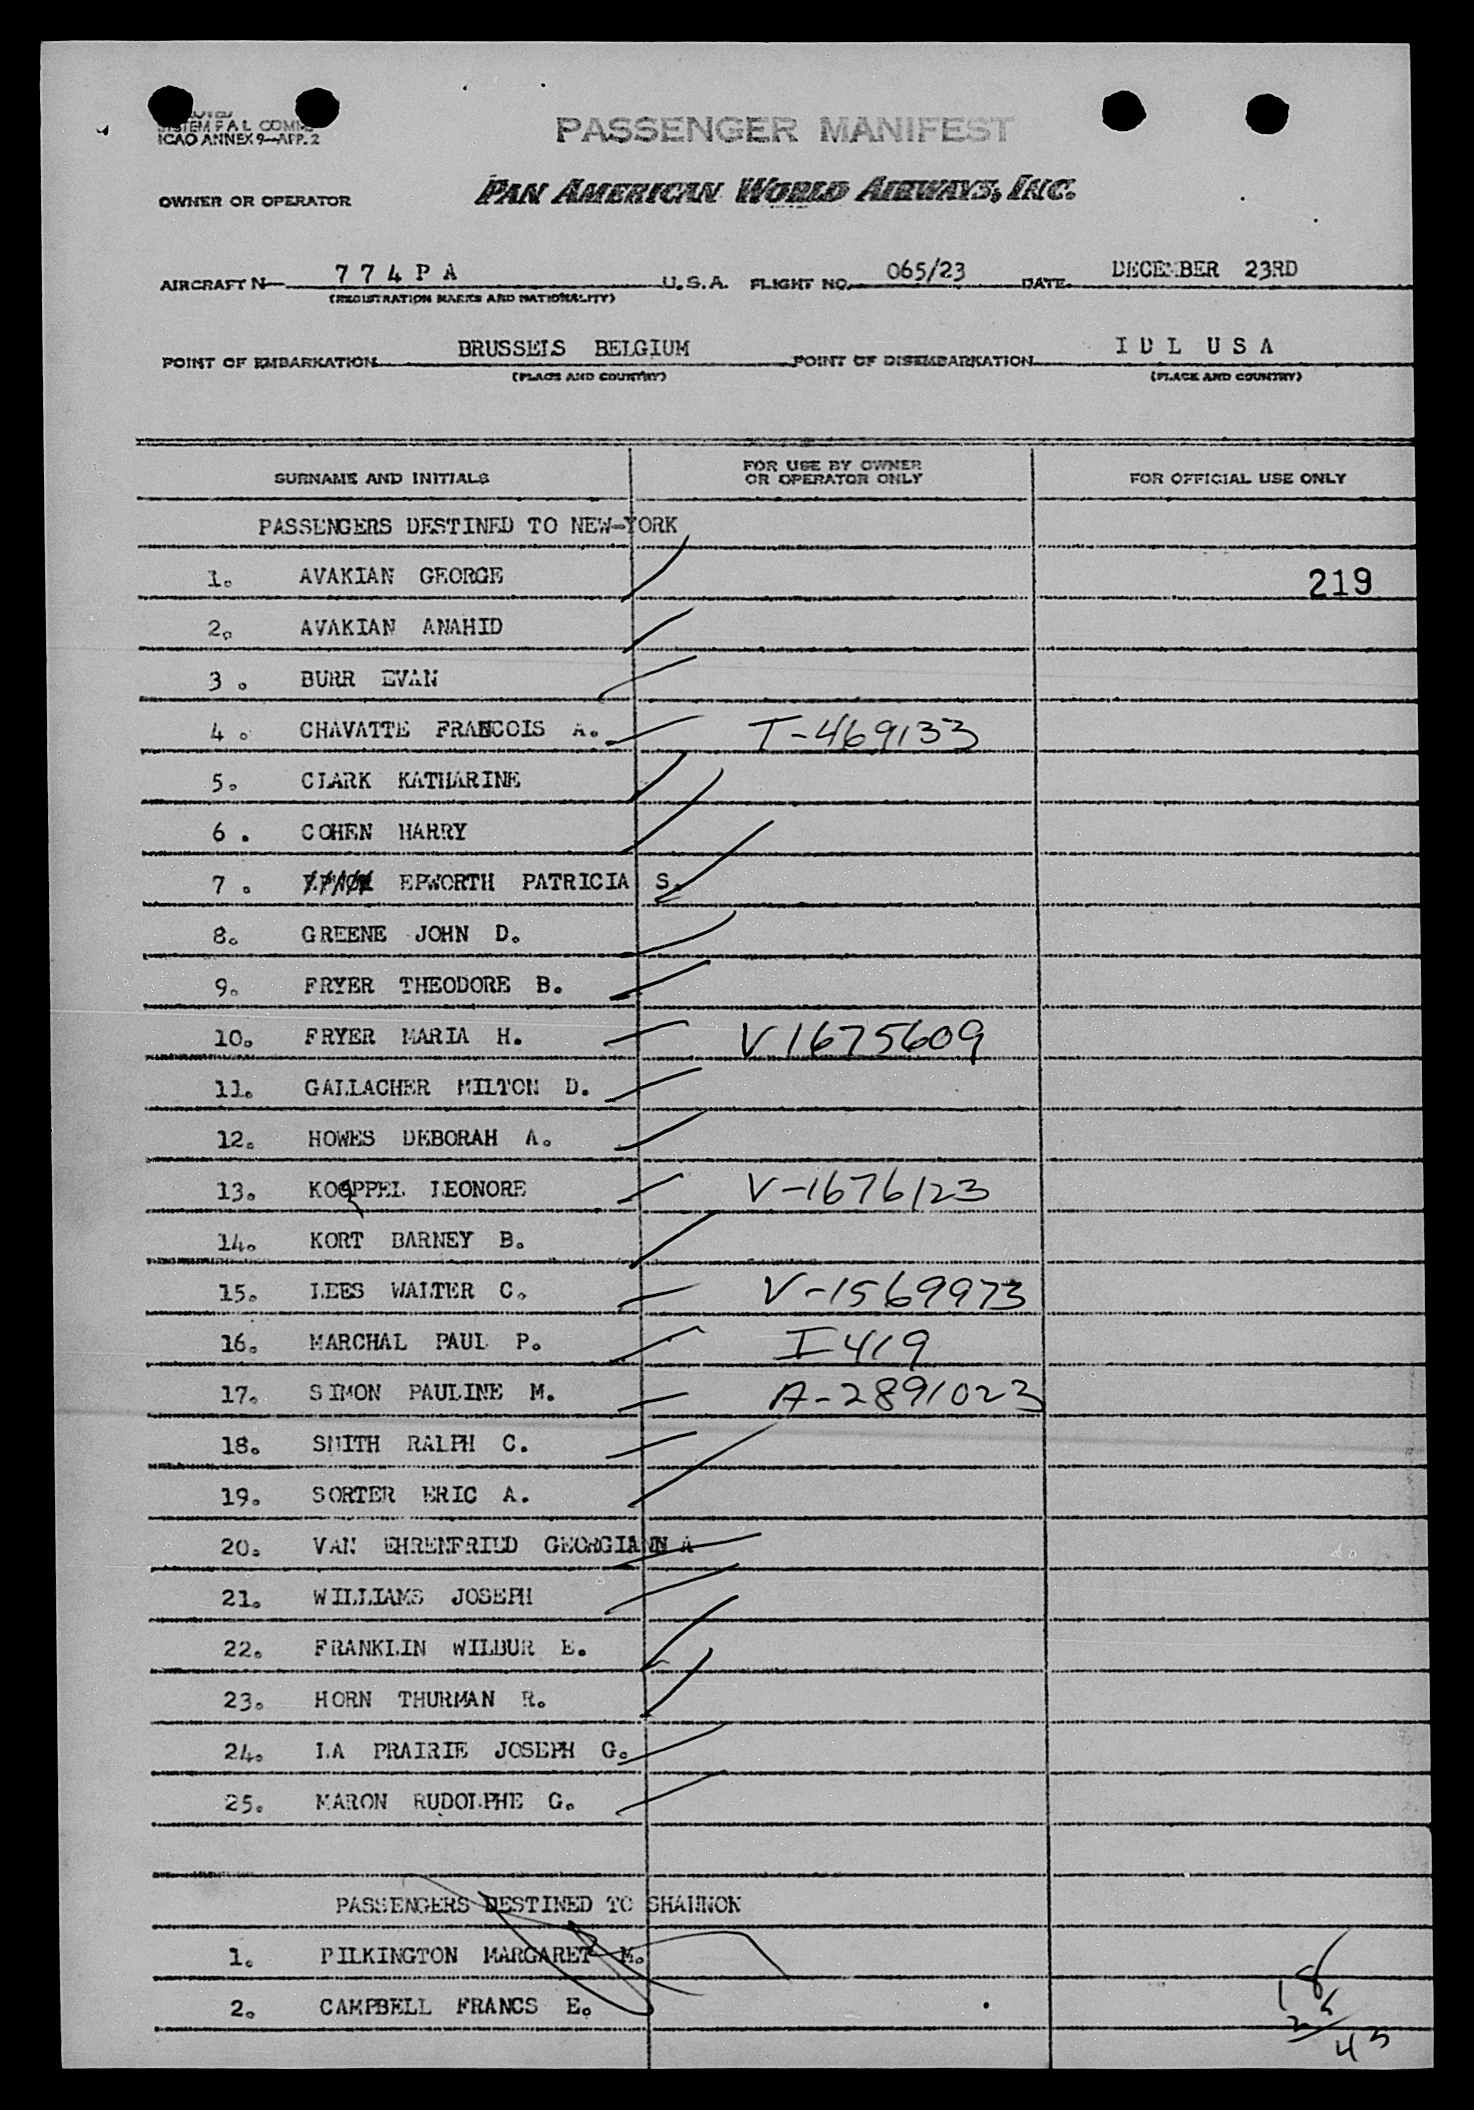 SYSTEM F A L COMM
ICAO ANNEX 9—APP. 2
PASSENGER MANIFEST
OWNER OR OPERATOR
PAN AMERICAN WORLD AIRWAYS, INC.
AIRCRAFT N— 7 7 4 P A U. S. A. FLIGHT NO. 065/23 DATE DECEMBER 23RD
(REGISTRATION MARKS AND NATIONALITY)
POINT OF EMBARKATION BRUSSELS BELGIUM POINT OF DISEMBARKATION I D L U S A
(PLACE AND COUNTRY) (PLACE AND COUNTRY)
SURNAME AND INITIALS FOR USE BY OWNER OR OPERATOR ONLY FOR OFFICIAL USE ONLY
PASSENGERS DESTINED TO NEW-YORK
1. AVAKIAN GEORGE 219
2. AVAKIAN ANAHID
3. BURR EVAN
4. CHAVATTE FRANCOIS A. T-469133
5. CLARK KATHARINE
6. COHEN HARRY
7. EPWORTH PATRICIA S.
8. GREENE JOHN D.
9. FRYER THEODORE B.
10. FRYER MARIA H. V1675609
11. GALLACHER MILTON D.
12. HOWES DEBORAH A.
13. KOEPPEL LEONORE V-1676123
14. KORT BARNEY B.
15. LEES WALTER C. V-1569973
16. MARCHAL PAUL P. I 419
17. SIMON PAULINE M. A-2891023
18. SMITH RALPH C.
19. SORTER ERIC A.
20. VAN EHRENFRIED GEORGIANN A
21. WILLIAMS JOSEPH
22. FRANKLIN WILBUR E.
23. HORN THURMAN R.
24. LA PRAIRIE JOSEPH G.
25. MARON RUDOLPHE G.
PASSENGERS DESTINED TO SHANNON
1. PILKINGTON MARGARET M.
2. CAMPBELL FRANCS E.